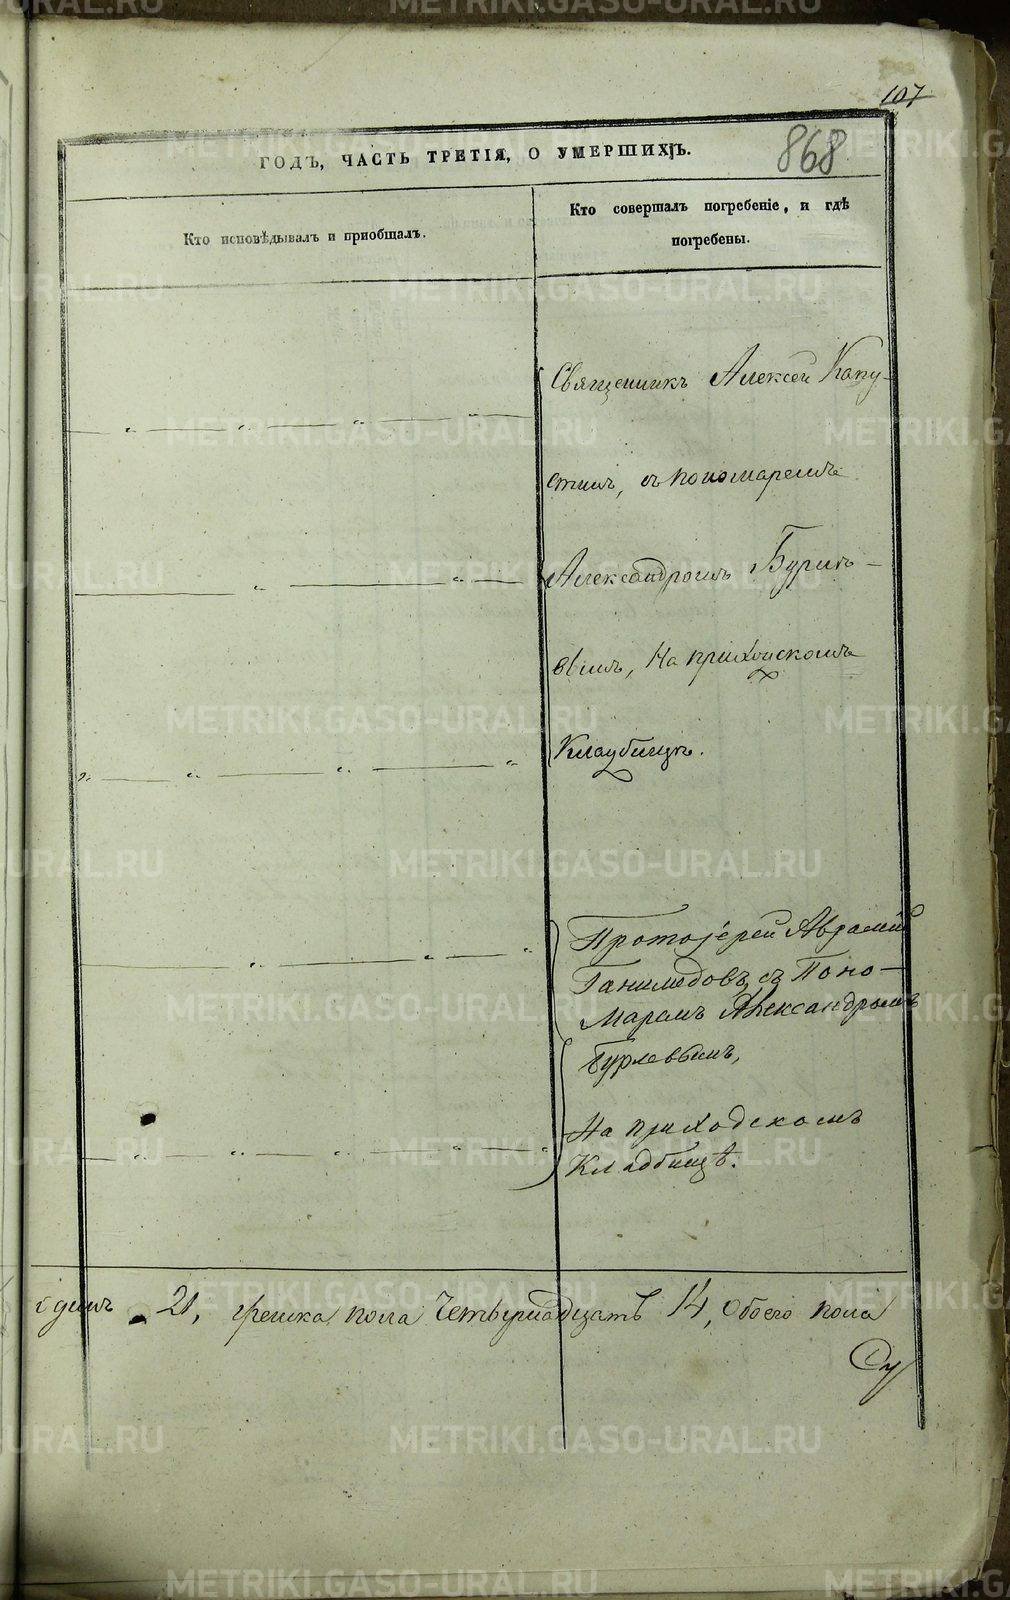 107
868
ГОДЪ, ЧАСТЬ ТРЕТІЯ, О УМЕРШИХЪ.
Кто исповѣдывалъ и пріобщалъ.
Кто совершалъ погребеніе, и гдѣ
погребены.
Священникъ Алексѣй Капу-
стинъ, съ пономаремъ
Александромъ
вымъ, на приходскомъ
Кладбищѣ.
Протоіерей Аврамій
Ганимедовъ, съ Поно-
маремъ Александромъ
Бурлевымъ,
На приходскомъ
Кладбищѣ.
21, женска пола четырнадцать 14, обоего пола
METRIKI.GASO-URAL.RU